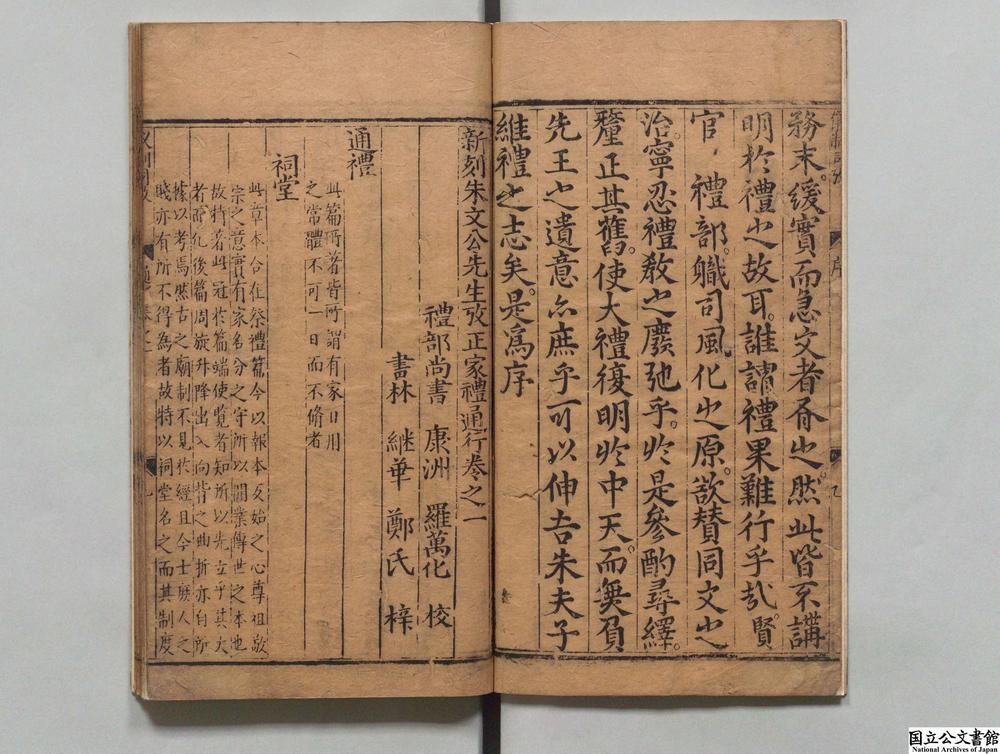 務末緩實而急文者吝也然此皆不講
明於禮之故耳誰謂禮果難行乎哉賢
官禮部職司風化之原欲賛同文之
治寧忍禮教之廢弛乎於是參酌尋繹
釐正其舊使大禮復明於中天而無負
先王之遺意亦庶乎可以伸吾朱夫子
維禮之志矣是爲序
新刻朱文公先生攷正家禮通行卷之一
禮部尚書 康洲 羅萬化 校
書林 継華 鄭氏 梓
通禮
此篇所著皆所謂有家日用
之常體不可一日而不脩者
祠堂
此章本合在祭禮篇今以報本反始之心尊祖敬
宗之意實有家名分之守所以開業傳世之本也
故特著此冠於篇端使覧者知所以先立乎其大
者而凢後篇周旋升降出入向背之曲折亦自所
據以考焉然古之廟制不見於經且今士庶人之
賤亦有所不得為者故特以祠堂名之而其制度
国立公文書館
National Archives of Japan